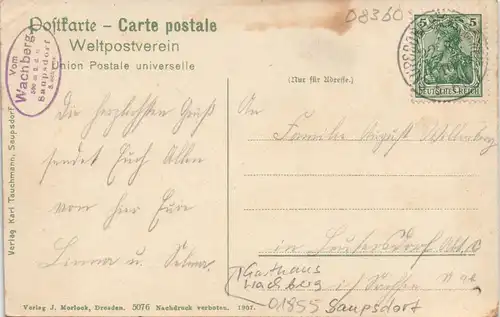 08360
Postkarte – Carte postale
Weltpostverein
Union Postale universelle
Vom
Wachberg
Saupsdorf
(Nur für Adresse.)
5 5
DEUTSCHES REICH
Die herzlichsten Grüße
sendet Euch Allen
von hier Eure
Linna u. Selma.
An
Familie August
in Leutersdorf
i/ Sachsen
Gasthaus
Wachberg
01855 Saupsdorf
Verlag Karl Tauchmann, Saupsdorf
Verlag J. Morlock, Dresden. 5076 Nachdruck verboten. 1907.